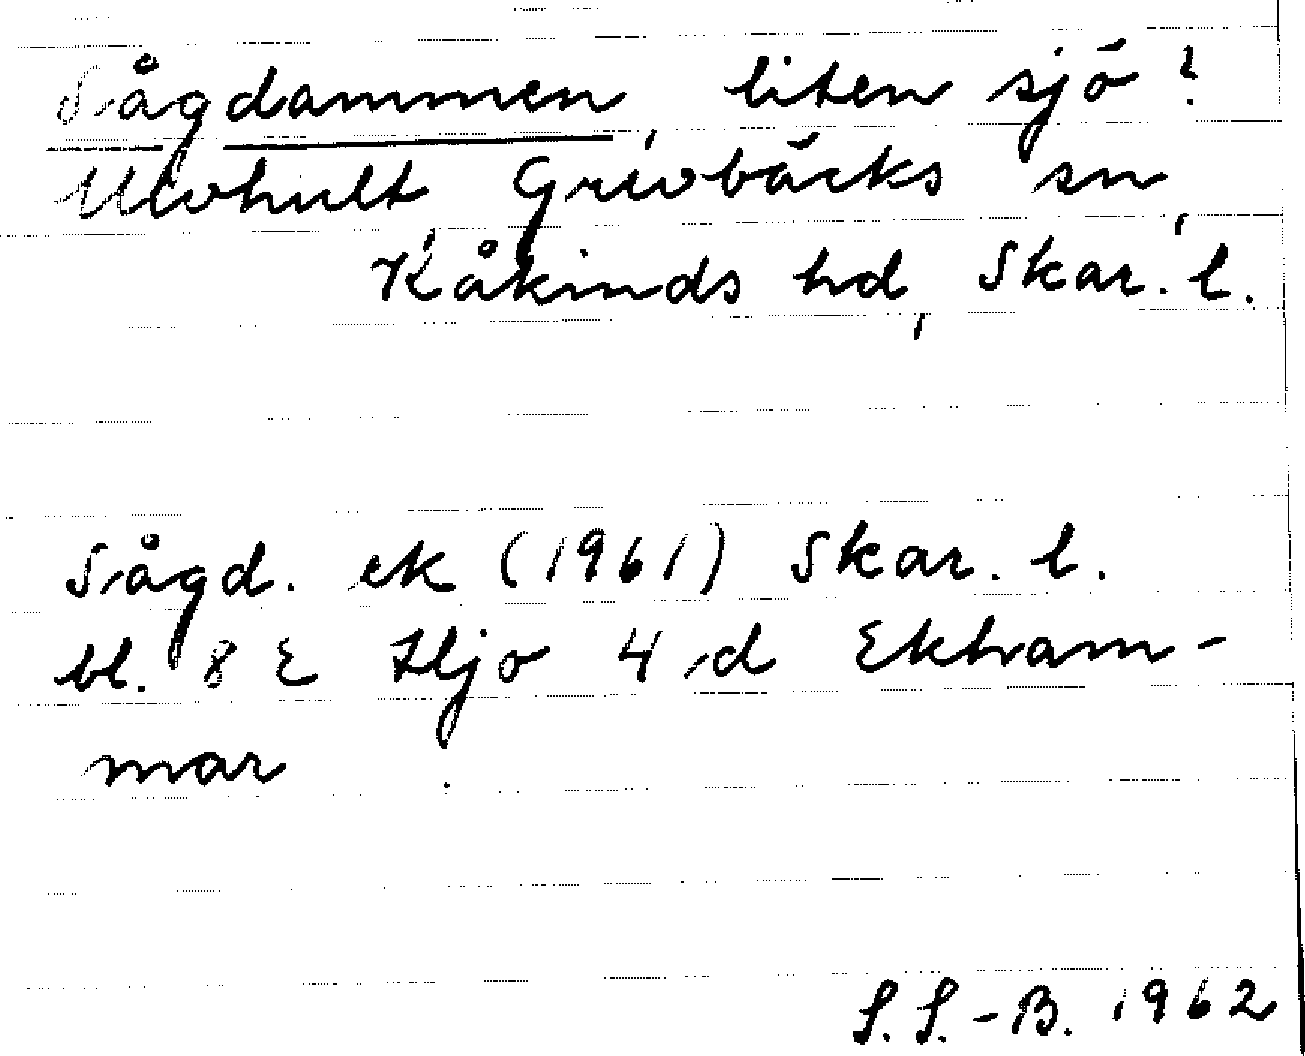 Sågdammen, liten sjö?
Ulvhult, Grevbäcks sn,
Kåkinds hd, Skar. l.
Sågd. ek (1961) Skar. l.
bl. 8 E Hjo 4 d Ekham-
mar
S. S.-B. 1962